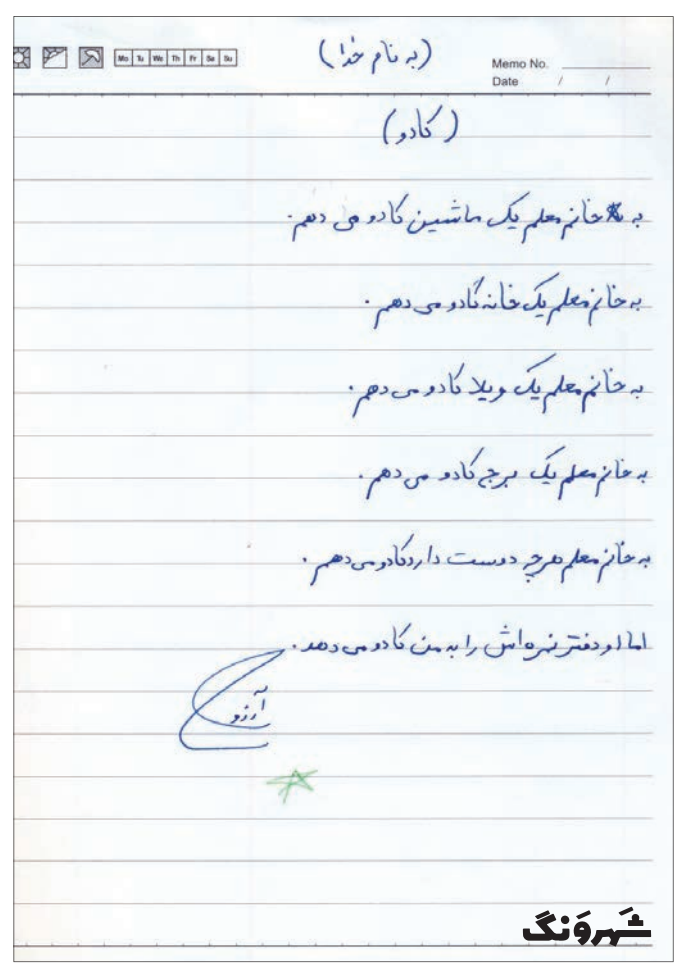 (به نام خدا)
Mo Tu We Th Fr Sa Su
Memo No.
Date / /
(کادو)
به خانم معلم یک ماشین کادو می دهم.
به خانم معلم یک خانه کادو می دهم.
به خانم معلم یک ویلا کادو می دهم.
به خانم معلم یک برج کادو می دهم.
به خانم معلم هرچه دوست دارد کادو می دهم.
اما او دفتر نمره اش را به من کادو می دهد.
آرزو
شهرونگ